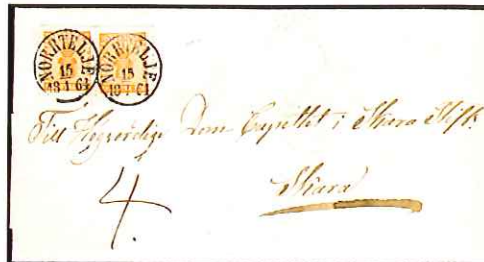 NORRTELJE NORRTELJE
15 15
18 1 64 18 1 64
Till Högvördige Dom-Capitlet i Skara Stift.
Skara
4.